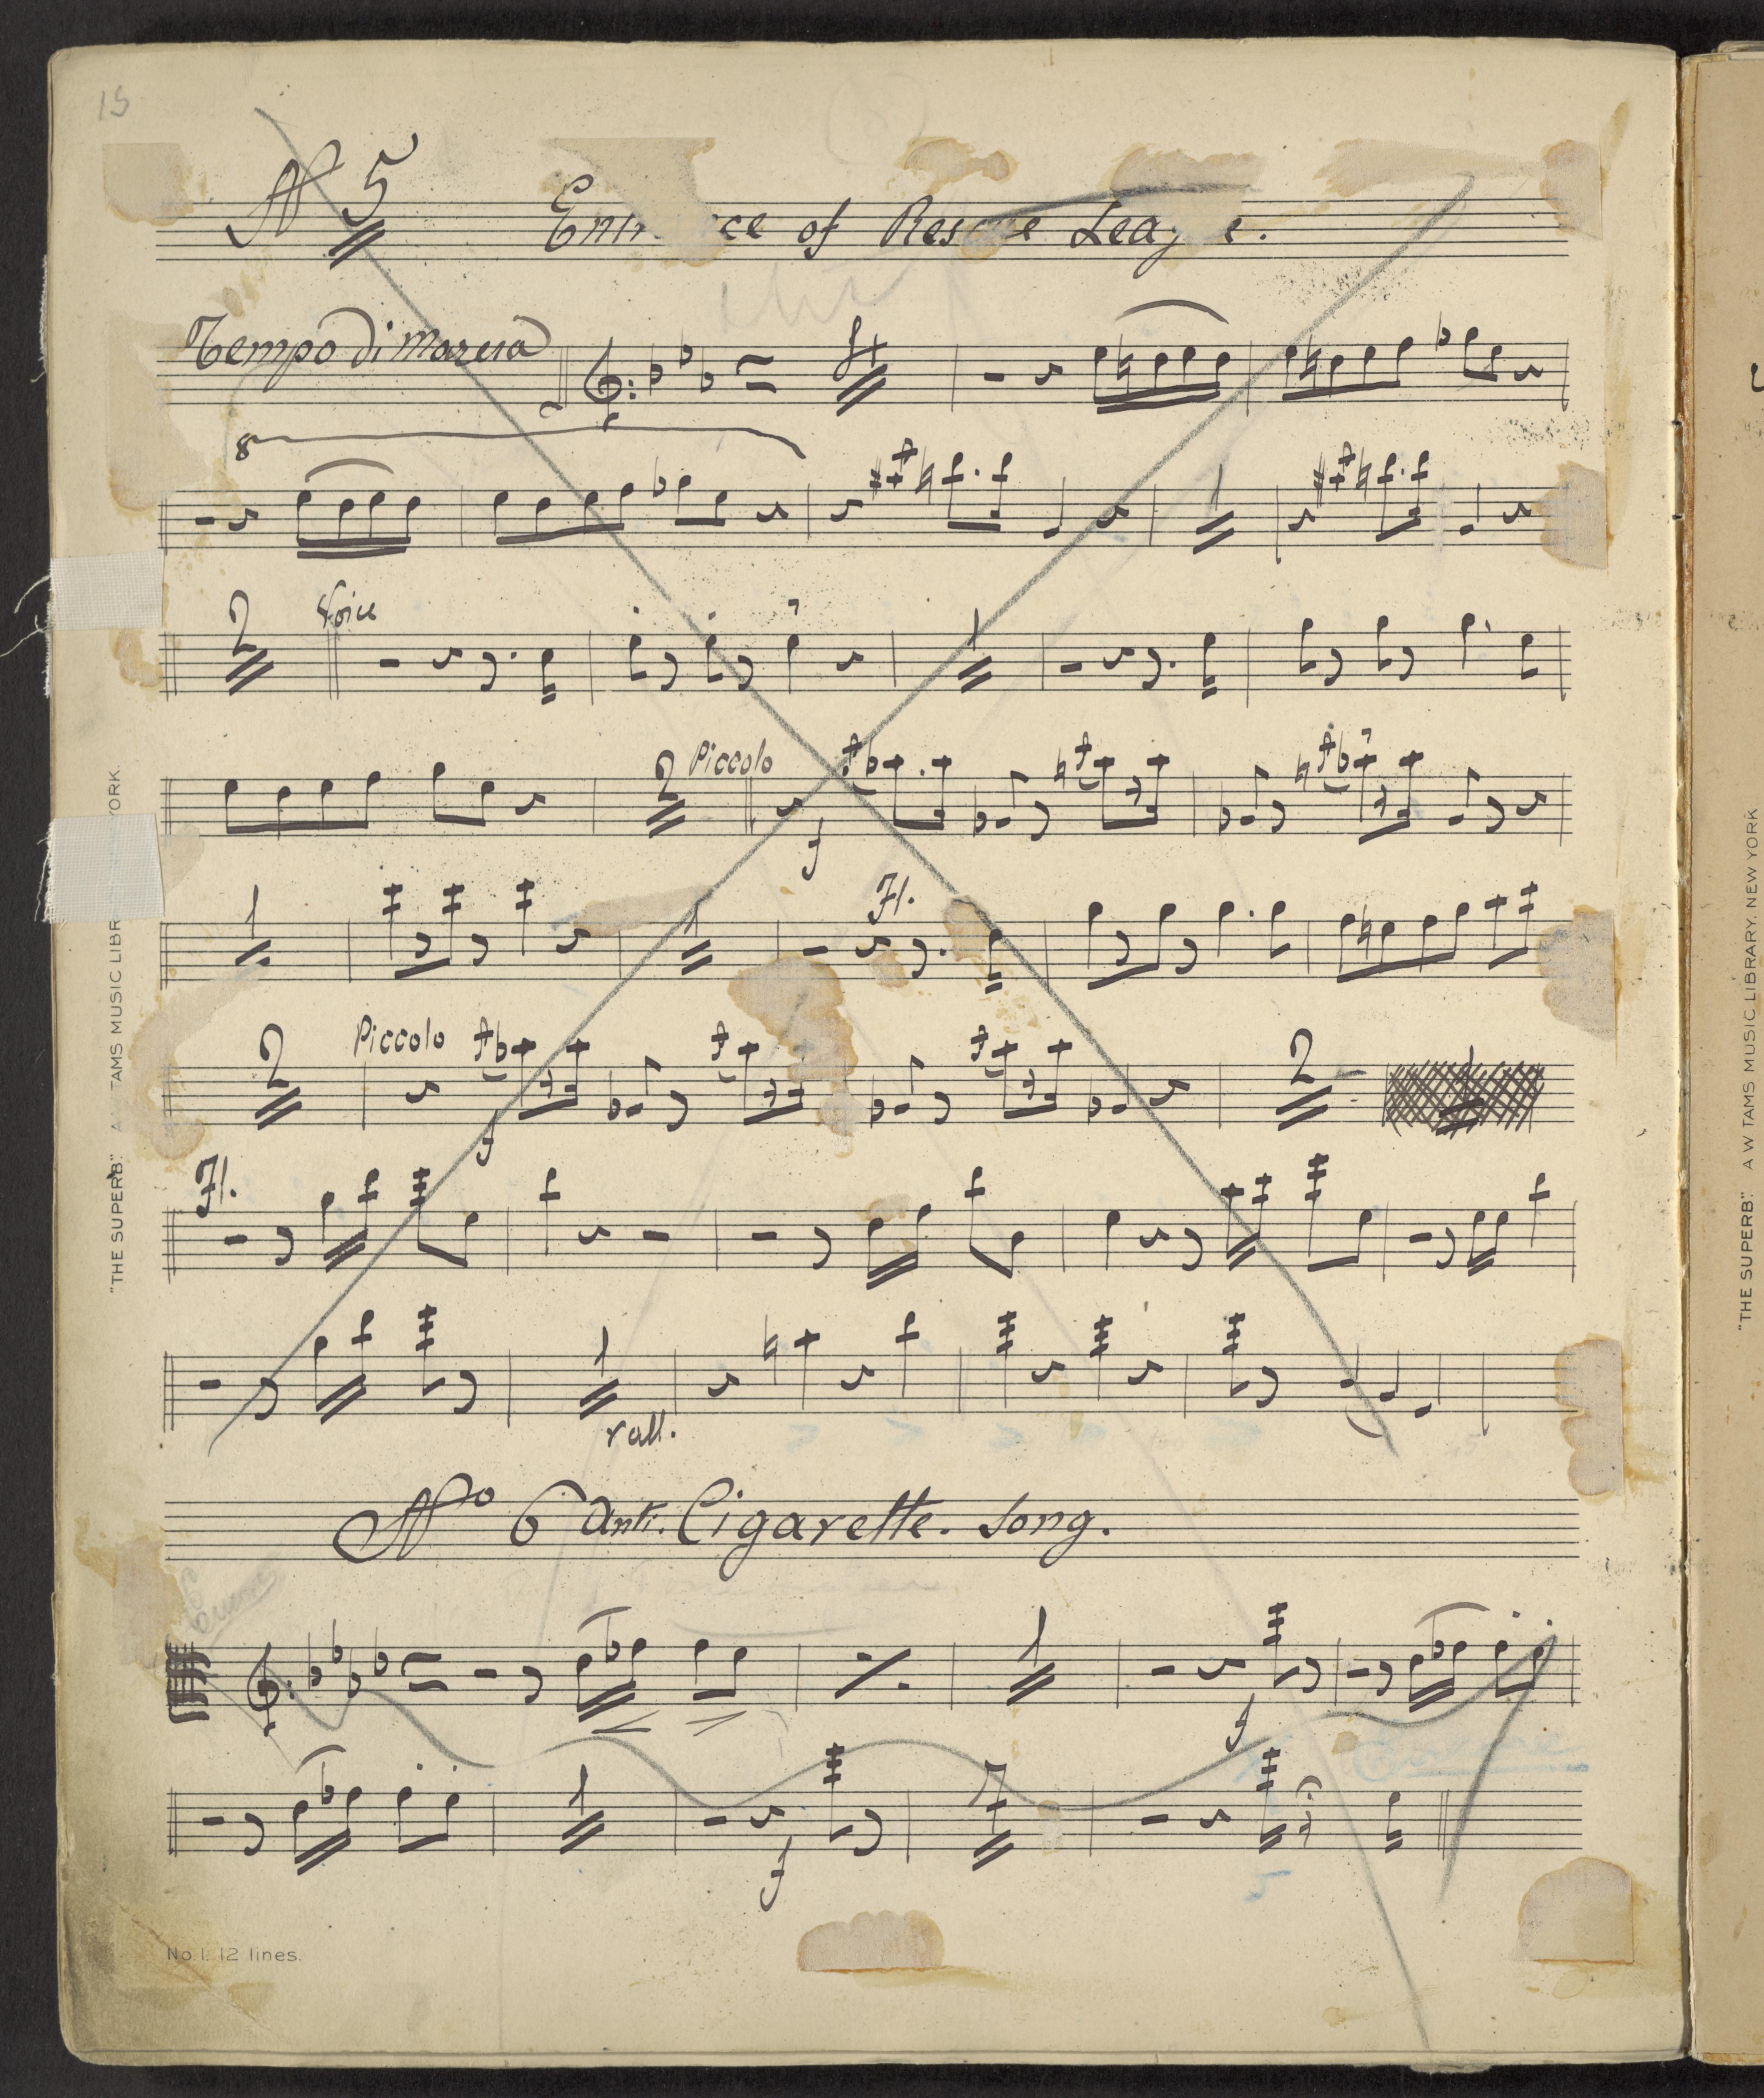 15
No 5 Entrance of Rescue League.
Tempo di Marcia
8
1
2 Voice 1
2 Piccolo
f
1 1 Fl.
2 Piccolo 2 1
f
Fl.
1
rall.
No 6 Anti. Cigarette. Song.
1
f
1 7
f
No 1. 12 lines.
"THE SUPERB" A TAMS MUSIC LIBR YORK.
"THE SUPERB" A W TAMS MUSIC LIBRARY, NEW YORK